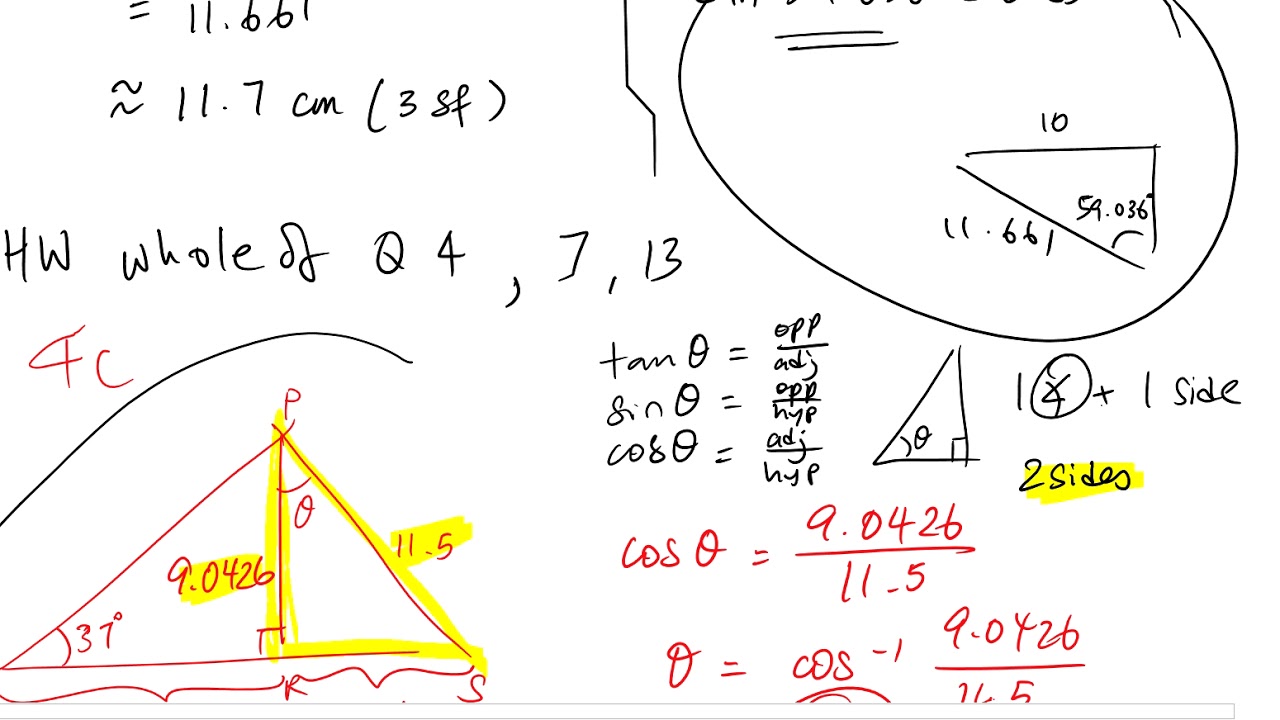 = 11.661
≈ 11.7 cm (3 sf)
10
59.036°
11.661
HW whole of Q 4 , 7, 13
4c
tan θ = opp/adj
sin θ = opp/hyp
cos θ = adj/hyp
θ
1 ∡ + 1 side
2 sides
P
θ
9.0426
11.5
37°
R
S
cos θ = 9.0426/11.5
θ = cos⁻¹ 9.0426/11.5